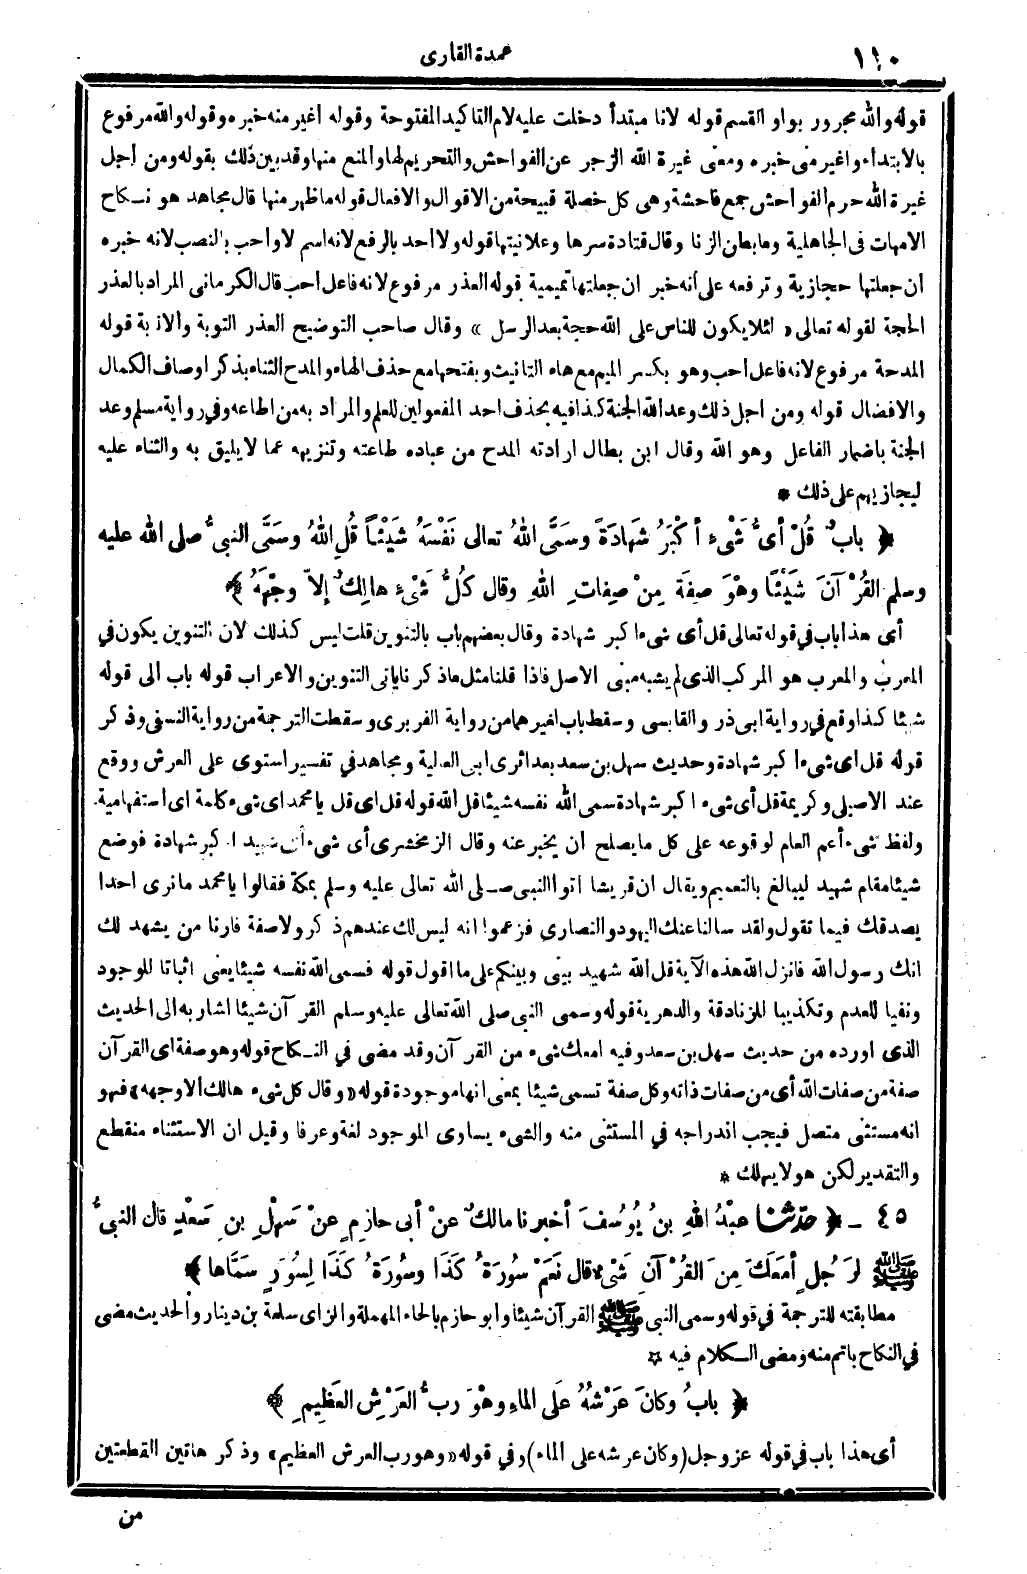 ١١٠
عمدة القارى
قوله والله مجرور بواو القسم قوله لانا مبتدأ دخلت عليه لام التاكيد المفتوحة وقوله اغير منه خبره وقوله والله مرفوع
بالابتداء واغير منى خبره ومعنى غيرة الله الزجر عن الفواحش والتحريم لها والمنع منها وقد بين ذلك بقوله ومن اجل
غيرة الله حرم الفواحش جمع فاحشة وهى كل خصلة قبيحة من الاقوال والافعال قوله ما ظهر منها قال مجاهد هو نكاح
الامهات فى الجاهلية وما بطن الزنا وقال قتادة سرها وعلانيتها قوله ولا احد بالرفع لانه اسم لا واحب بالنصب لانه خبره
ان جعلتها حجازية وترفعه على أنه خبر ان جعلتها تميمية قوله العذر مرفوع لانه فاعل احب قال الكرمانى المراد بالعذر
الحجة لقوله تعالى « لئلا يكون للناس على الله حجة بعد الرسل » وقال صاحب التوضيح العذر التوبة والانابة قوله
المدحة مرفوع لانه فاعل احب وهو بكسر الميم مع هاء التانيث وبفتحها مع حذف الهاء والمدح الثناء بذكر اوصاف الكمال
والافضال قوله ومن اجل ذلك وعد الله الجنة كذا فيه بحذف احد المفعولين للعلم والمراد به من اطاعه وفي رواية مسلم وعد
الجنة باضمار الفاعل وهو الله وقال ابن بطال ارادته المدح من عباده طاعته وتنزيهه عما لا يليق به والثناء عليه
ليجازيهم على ذلك *
﴿ بابٌ قُلْ أىُّ شَىْءٍ أكْبَرُ شَهَادَةً وسَمَّى اللهُ تعالى نَفْسَهُ شَيْئاً قُلِ اللهُ وسَمَّى النبىُّ صلى الله عليه
وسلم القُرْآنَ شَيْئًا وهْوَ صِفَةٌ مِنْ صِفاتِ اللهِ وقال كُلُّ شَىْءٍ هالِكٌ إلاّ وجْهَهُ ﴾
أى هذا باب في قوله تعالى قل أى شىء اكبر شهادة وقال بعضهم باب بالتنوين قلت ليس كذلك لان التنوين يكون في
المعرب والمعرب هو المركب الذى لم يشبه مبنى الاصل فاذا قلنا مثل ما ذكرنا ياتى التنوين والاعراب قوله باب الى قوله
شيئا كذا وقع في رواية ابى ذر والقابسى وسقط باب لغيرهما من رواية الفربرى وسقطت الترجمة من رواية النسفى وذكر
قوله قل اى شىء اكبر شهادة وحديث سهل بن سعد بعد اثرى ابى العالية ومجاهد في تفسير استوى على العرش ووقع
عند الاصيلى وكريمة قل أى شىء اكبر شهادة سمى الله نفسه شيئا قل الله قوله قل اى قل يا محمد اى شىء كلمة اى استفهامية
ولفظ شىء أعم العام لوقوعه على كل ما يصلح ان يخبر عنه وقال الزمخشرى أى شىء أى شهيد اكبر شهادة فوضع
شيئا مقام شهيد ليبالغ بالتعميم ويقال ان قريشا اتوا النبى صلى الله تعالى عليه وسلم بمكة فقالوا يا محمد ما نرى احدا
يصدقك فيما تقول ولقد سالنا عنك اليهود والنصارى فزعموا انه ليس لك عندهم ذكر ولا صفة فارنا من يشهد لك
انك رسول الله فانزل الله هذه الآية قل الله شهيد بينى وبينكم على ما اقول قوله فسمى الله نفسه شيئا يعنى اثباتا للوجود
ونفيا للعدم وتكذيبا للزنادقة والدهرية قوله وسمى النبى صلى الله تعالى عليه وسلم القرآن شيئا اشار به الى الحديث
الذى اورده من حديث سهل بن سعد وفيه امعك شىء من القرآن وقد مضى في النكاح قوله وهو صفة اى القرآن
صفة من صفات الله أى من صفات ذاته وكل صفة تسمى شيئا بمعنى انها موجودة قوله «وقال كل شىء هالك الا وجهه» فهو
انه مستثنى متصل فيجب اندراجه في المستثنى منه والشىء يساوى الموجود لغة وعرفا وقيل ان الاستثناء منقطع
والتقدير لكن هو لا يهلك *
٤٥ - ﴿ حدثنا عبْدُ اللهِ بنُ يُوسُفَ أخبرنا مالكٌ عنْ أبى حازمٍ عنْ سَهْلِ بنِ سَعْدٍ قال النبىُّ
ﷺ لِرَجُلٍ أمَعَكَ مِنَ القُرْآنِ شَىْءٌ قال نَعَمْ سُورَةُ كَذَا وسُورَةُ كَذَا لِسُوَرٍ سَمَّاها ﴾
مطابقته للترجمة في قوله وسمى النبى ﷺ القرآن شيئا وابو حازم بالحاء المهملة والزاى سلمة بن دينار والحديث مضى
في النكاح باتم منه ومضى الكلام فيه *
﴿ بابُ وكانَ عَرْشُهُ عَلَى الماءِ وهْوَ رَبُّ العَرْشِ العَظِيمِ ﴾
أى هذا باب في قوله عز وجل (وكان عرشه على الماء) وفي قوله «وهو رب العرش العظيم» وذكر هاتين القطعتين
من